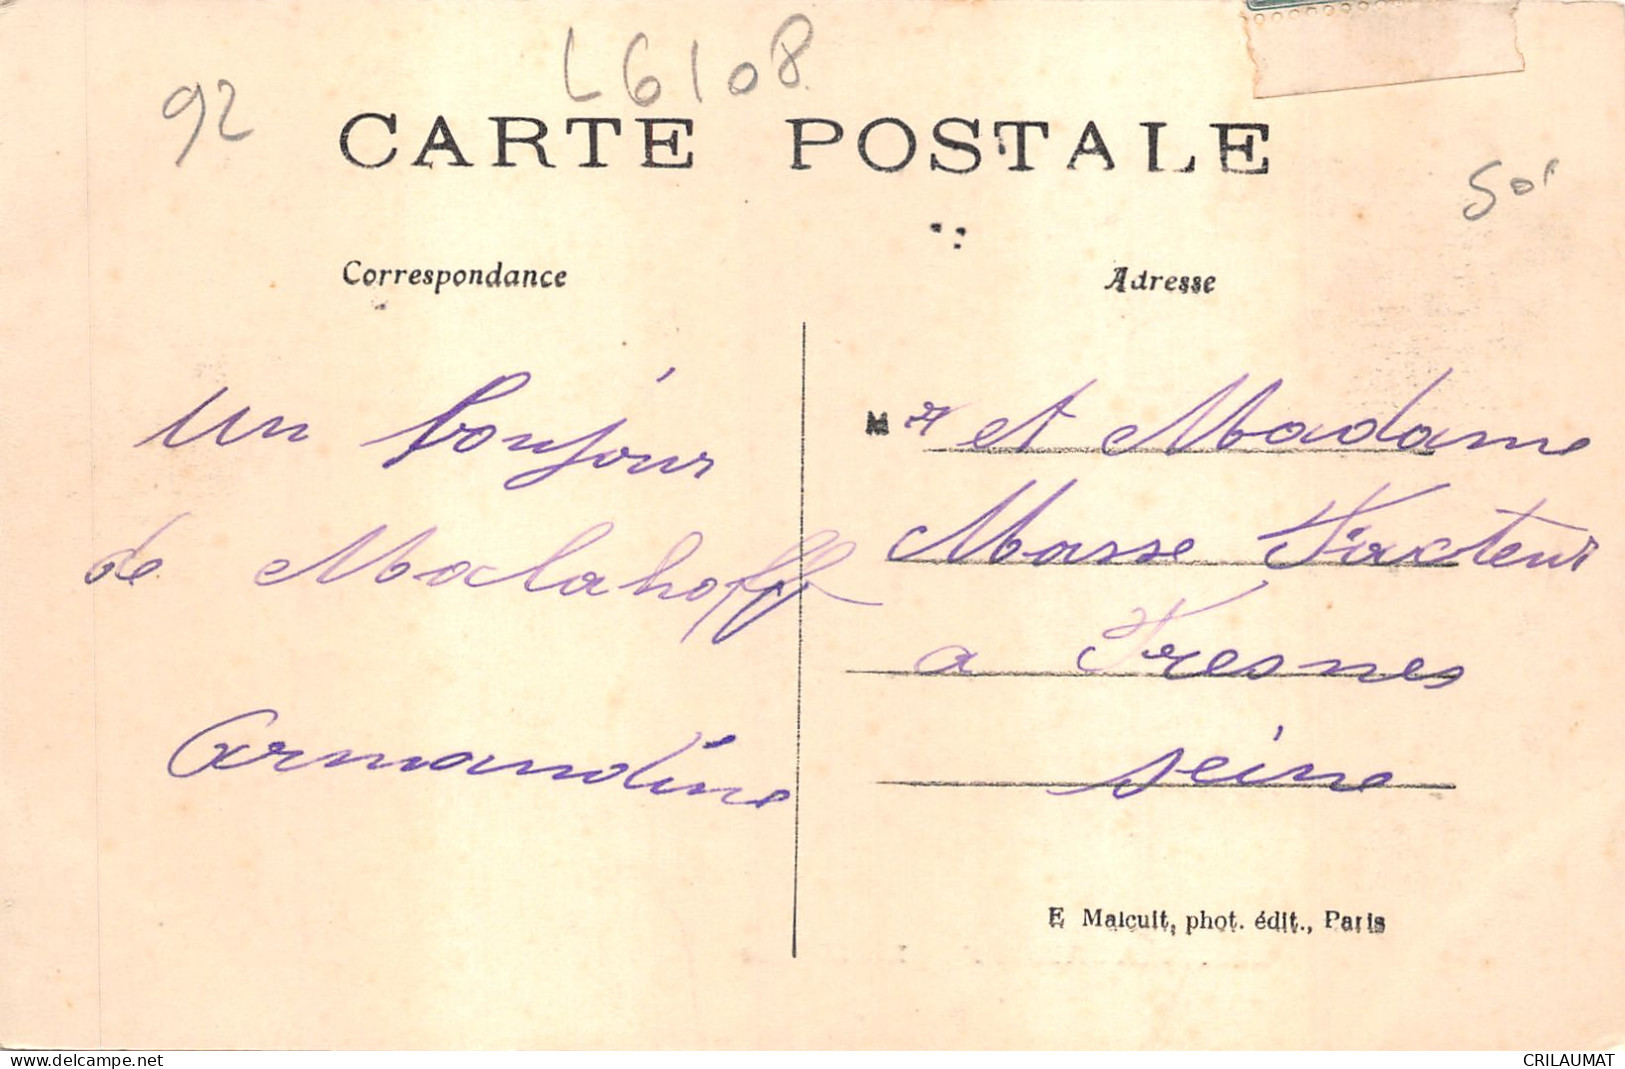 92
L6108
CARTE POSTALE
50
Correspondance
Adresse
un bonjour
de Malahoff
Armandine
Mr et Madame
Masse Facteur
a Fresnes
seine
E Malcuit, phot. édit., Paris
www.delcampe.net
CRILAUMAT